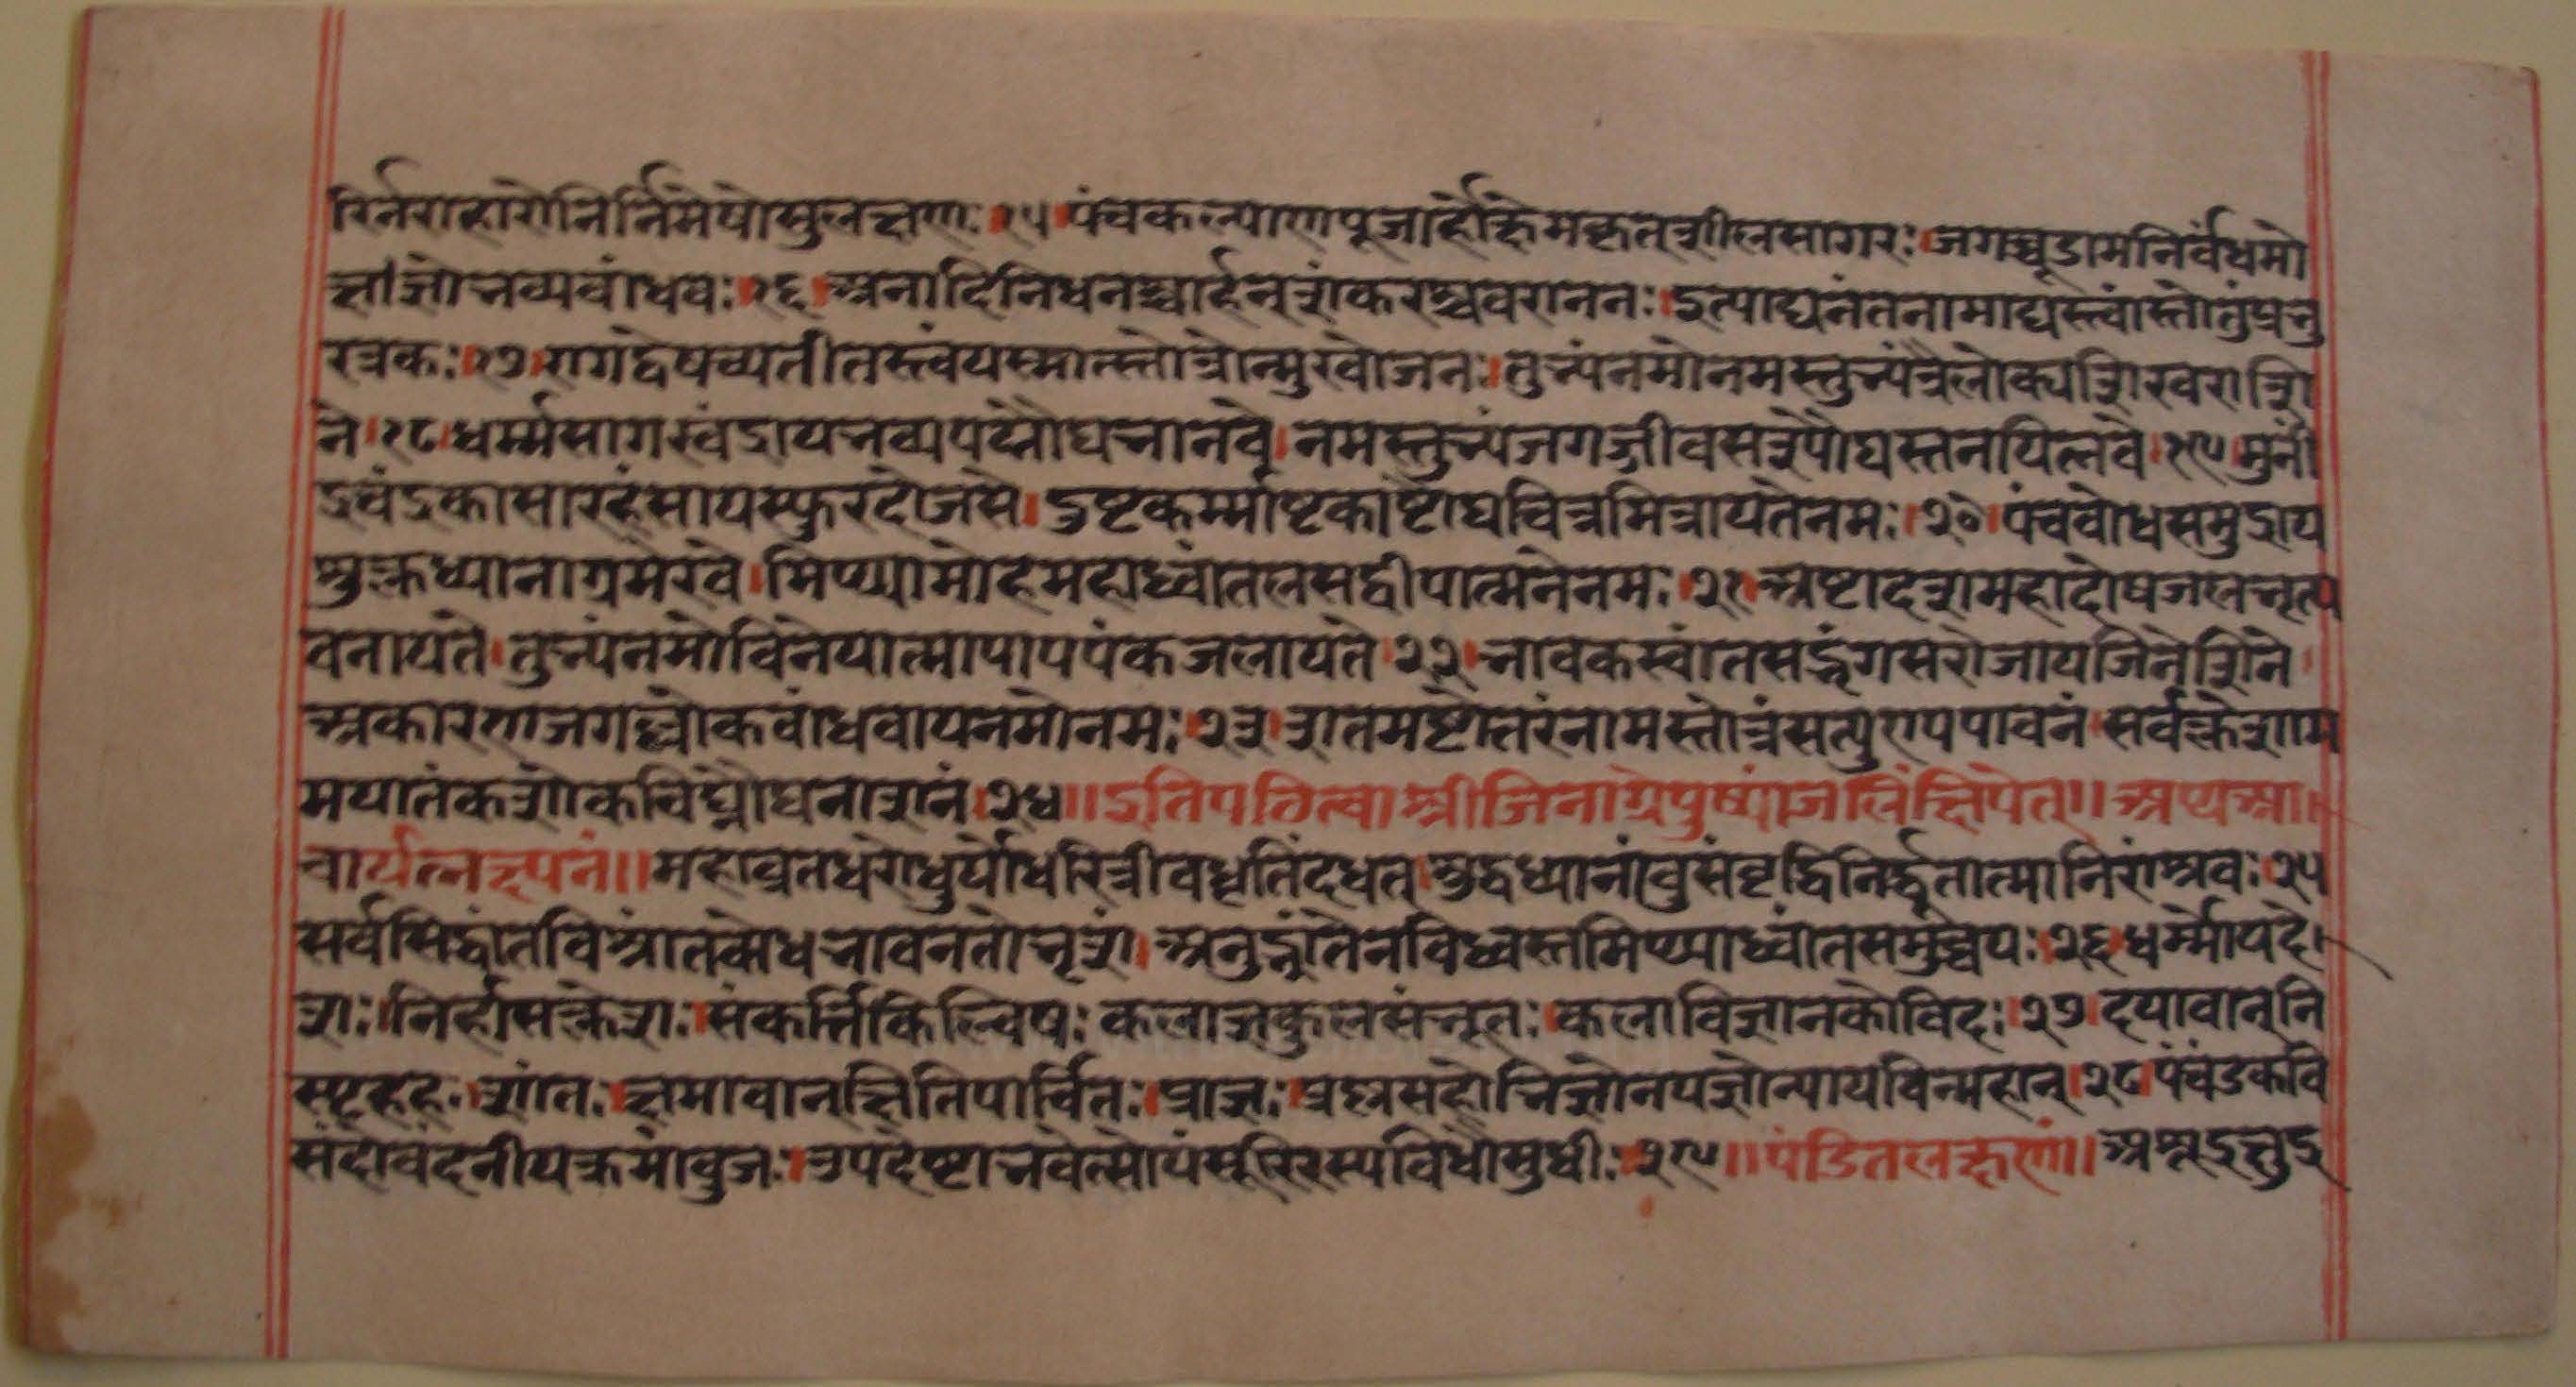 रिर्निराहारोनिर्निमेषोसुलक्षणः।१५।पंचकल्याणपूजार्होक्षेमकृत्शीलसागरः।जगच्चूडामनिर्बंधमो
क्षज्ञोभव्यबांधवः।१६।अनादिनिधनश्चार्हन्शंकरश्चवराननः।इत्याद्यनंतनामाद्यस्त्वांस्तोतुंप्रभु
रत्रकः।१७।रागद्वेषव्यतीतस्त्वंयस्मात्स्तोत्रोन्मुखोजनः।तुभ्यंनमोनमस्तुभ्यंत्रैलोक्यशिखराशि
ने।१८।धर्म्मसागरचंद्रायभव्यपद्मौघभानवे।नमस्तुभ्यंजगज्जीवसस्यौघस्तनयित्नवे।१९।मुनीं
द्रवंद्रकासारहंसायस्फुरदोजसे।दुष्टकर्म्माष्टकाष्टौघचित्रमित्रायतेनमः।२०।पंचबोधसमुद्राय
शुक्लध्यानाग्रमेरवे।मिथ्यामोहमहाध्वांतलसद्दीपात्मनेनमः।२१।अष्टादशमहादोषजलभृत्प
वनायते।तुभ्यंनमोविनेयात्मापापपंकजलायते।२२।भावकस्वांतसद्भृंगसरोजायजिनेशिने।
अकारणजगल्लोकबांधवायनमोनमः।२३।शतमष्टोत्तरंनामस्तोत्रंसत्पुण्यपावनं।सर्वक्लेशाम
मयातंकशोकविघ्नौघनाशनं।२४॥इतिपठित्वाश्रीजिनाग्रेपुष्पांजलिंक्षिपेत्॥अथआ।
चार्यलक्षणं॥महाव्रतधरोधुर्योधरित्रीवधृतिंदधत्।शुद्धध्यानांबुसंवृद्धिनिर्द्धूतात्मानिरांश्रवः।२५
सर्वसिद्धांतविश्रांतबोधभावनतोभृशं।अनुद्भांतेनविध्वस्तमिथ्याध्वांतसमुच्चयः।२६।धर्म्मोपदे।
शः।निर्हासक्लेशः।संकर्त्तिकिल्विषः।कलाज्ञकुलसंभूतः।कलाविज्ञानकोविदः।२७।दयावान्नि
स्पृहहः।शांतः।क्षमावान्क्षितिपार्चितः।प्राज्ञः।प्रश्नसहोभिज्ञोनयज्ञोन्यायविन्महान्।२८।पंचंडकवि
संदोवंदनीयक्रमांबुजः।उपदेष्टाभवेत्सोयंसूरिरस्यविधौसुधीः।२९॥पंडितलक्षणं॥अश्रूद्रक्षुद्र